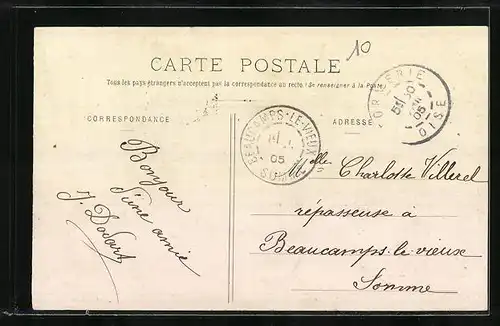 10
CARTE POSTALE
Tous les pays étrangers n'acceptent pas la correspondance au recto (Se renseigner à la Poste)
CORRESPONDANCE
ADRESSE
FORMERIE
OISE
05
BEAUCAMPS-LE-VIEUX
SOMME
05
Bonjour
d'une amie
J. Dodart
Melle Charlotte Villerel
répasseuse à
Beaucamps-le-vieux
Somme